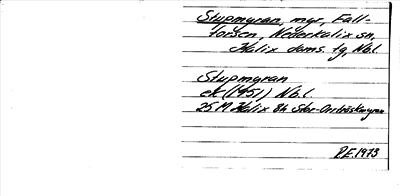 Stupmyran, myr, Fall-
forsen, Nederkalix sn,
Kalix doms. tg, Nbl.
Stupmyran
ek (1951) Nbl.
25 M Kalix 8h Stor-Orrträskmyran
P.E. 1973